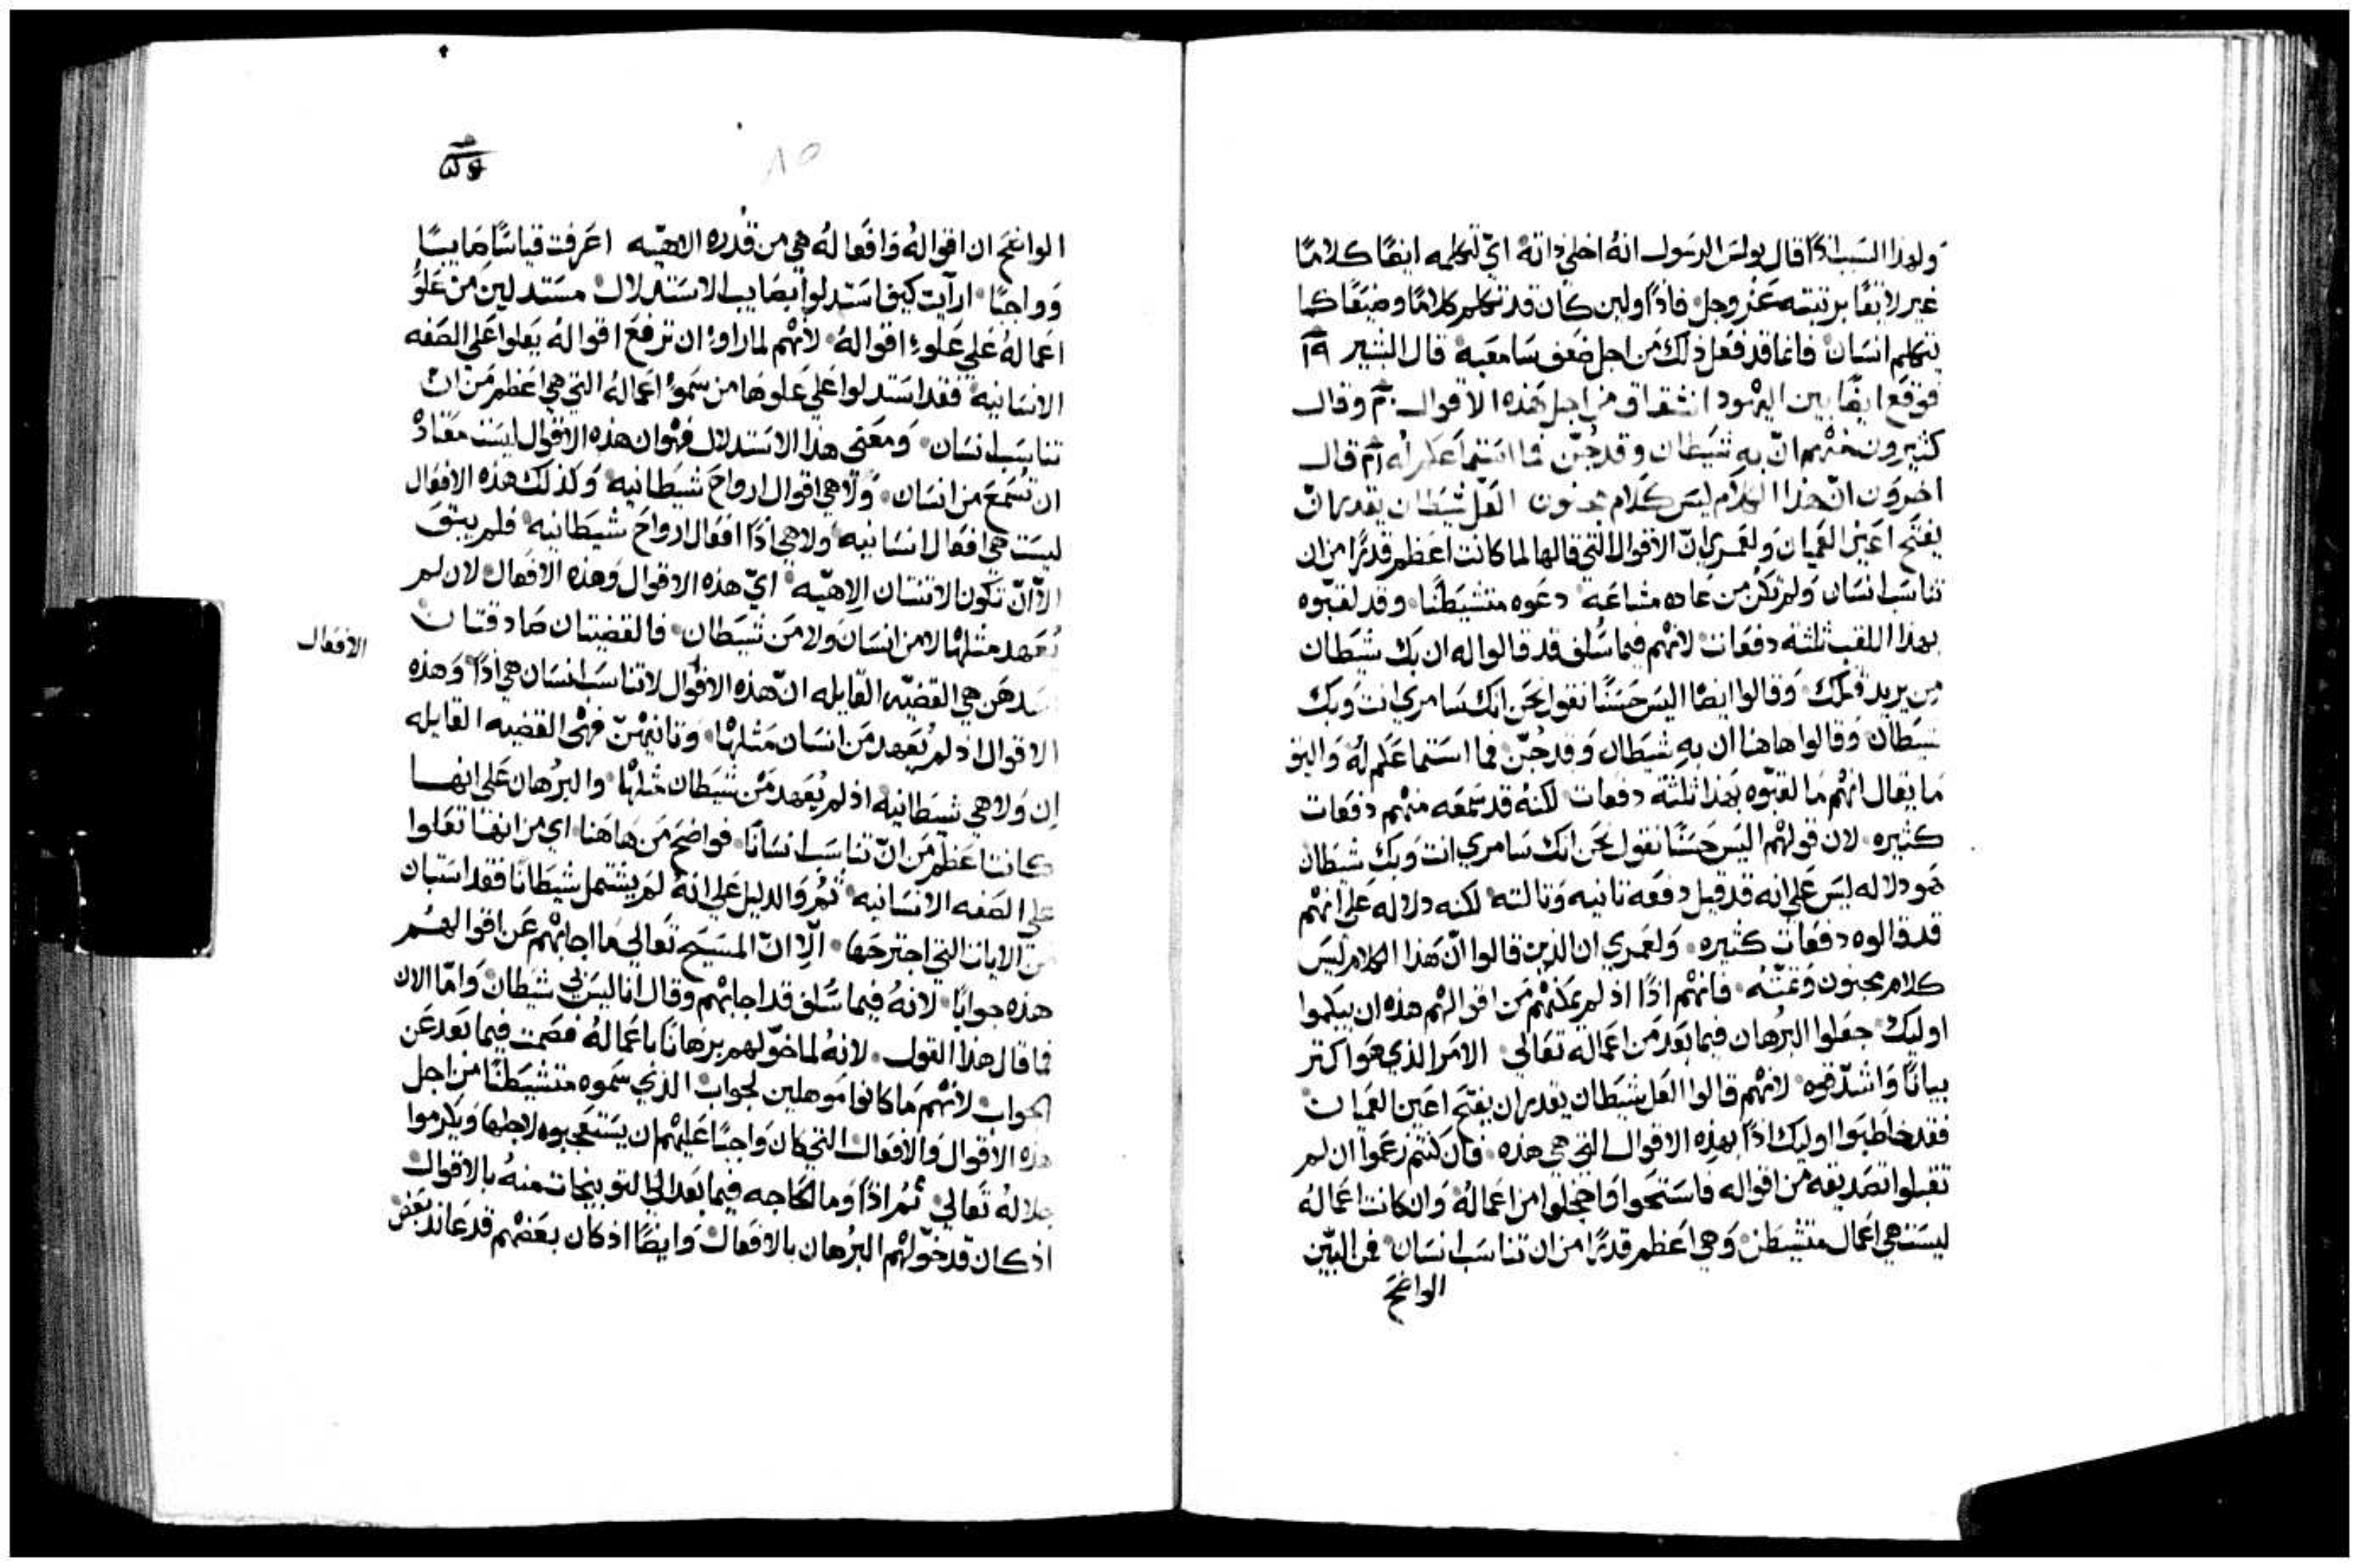 ولهذا السبب اذًا قال بولس الرسول انهُ اخلي ذاتهُ اي تكلمه ايضًا كلامًا
غير لايقًا برتبته عَزّ وجل فاذًا ولين كان قد تكلم كلامًا وضيعًا كما
يتكلم انسان فانما قد فعل ذلك من اجل ضعف سامعيه قال البشير ١٩
فوقع ايضًا بين اليهود انشقاق من اجل هذه الاقوال ٢٠ وقال
كثيرون منهم انّ به شيطان وقد جُنّ فما استماعكم له ٢١ قال
اخرون انّ هذا الكلام ليس كلام مجنون العَل شيطان يقدر انّ
يفتح اعين العميان ولعمري انّ الاقوال التي قالها لما كانت اعظم قدرًا من ان
تناسب انسان ولم تكن من عاده مشاعه دعوه متشيطنًا وقد لقبّوه
بهذا اللقب ثلثة دفعات لانهم فيما سُلف قد قالوا له ان بك شيطان
من يريد قتلك وقالوا ايضًا اليس حسنًا نقول نحن انك سامري انت وبك
شيطان وقالوا هاهنا ان به شيطان وقد جُنّ فما استماعكم لهُ واليق
ما يقال انهم ما لقبّوه بهذا ثلثة دفعات لكنهُ قد سمعه منهم دفعات
كثيره لان قولهم اليس حسنًا نقول نحن انك سامري انت وبك شيطان
هو دلاله ليس علي انه قد قيل دفعه ثانيه وثالثه لكنه دلاله علي انهم
قد قالوه دفعات كثيره ولعمري ان الذين قالوا انّ هذا الكلام ليس
كلام مجنون وعَتّه فانهم اذًا اذ لم يمكنهم من اقوالهم هذه ان يبكموا
اوليك جعلوا البرهان فيما بعد من اعماله تعالي الامر الذي هو اكثر
بيانًا واشدّ قوه لانهم قالوا العل شيطان يقدر ان يفتح اعين العميان
فقد خاطبوا اوليك اذًا بهذه الاقوال التي هي هذه فان كنتم زعموا ان لم
تقبلوا تصديقه من اقواله فاستحوا واخجلوا من اعمالهُ وان كانت اعمالهُ
ليست هي اعمال متشيطن وهي اعظم قدرًا من ان تناسب انسان فمن البيّن
الواضح
٨٥
الواضح ان اقوالهُ وافعالهُ هي من قدره الاهيّه اعرفت قياسًا صايبًا
وواجبًا ارآيت كيف استدلوا بصايب الاستدلال مستدلين من علوُ
اعمالهُ علي علوءِ اقوالهُ لانهم لما راوءُ ان ترفع اقوالهُ يعلوا علي الصفه
الانسانيه فقد استدلوا علي علوها من سموُ اعمالهُ التي هي اعظم من انّ
تناسب انسان ومعني هذا الاستدلال فهُو ان هذه الاقوال ليست معتادْ
ان تُسمع من انسان ولا هي اقوال ارواح شيطانيه وكذلك هذه الافعال
ليست هي افعال انسانيه ولا هي اذًا افعال ارواح شيطانيه فلم يبق
الاّ انّ تكون الاثنتان الاهيّه اي هذه الاقوال وهذه الافعال لان لم
يُعهد مثلها لا من انسان ولا من شيطان فالقضيتان صادقتان
الافعال
هي القضيّه القايله انّ هذه الاقوال لا تناسب انسان هي اذًا وهذه
الاقوال اذ لم يُعهد من انسان مثلها وثانيهنّ فهي القضيه القايله
ان ولا هي شيطانيه اذ لم يُعهد من شيطان مثلها والبرُهان علي انها
كانت اعظم من انّ تناسب انسانًا فواضح من هاهنا اي من انها تعلوا
علي الصفه الانسانيه ثمُ والدليل علي انهُ لم يشتمل شيطانًا فقد استبان
من الايات التي اجترحها الاّ انّ المسيح تعالي ما اجابهم عن اقوالهم
هذه جوابًا لانهُ فيما سُلف قد اجابهم وقال انا ليس بي شيطان وامّا الان
فما قال هذا القول لانهُ لما خوّلهم برهانًا باعمالهُ فصمت فيما بعد عن
الجواب لانهم ما كانوا موهلين لجواب الذي سموه متشيطنًا من اجل
هذه الاقوال والافعال التي كان واجبًا عليهم ان يستعجبوه لاجلها ويكرموا
جلالهُ تعالي ثمُ اذًا وما الحاجه فيما بعد الي التوبيخات منهُ بالاقوال
اذ كان قد خوّلهم البرُهان بالافعال وايضًا اذ كان بعضهم قد عاند بعض